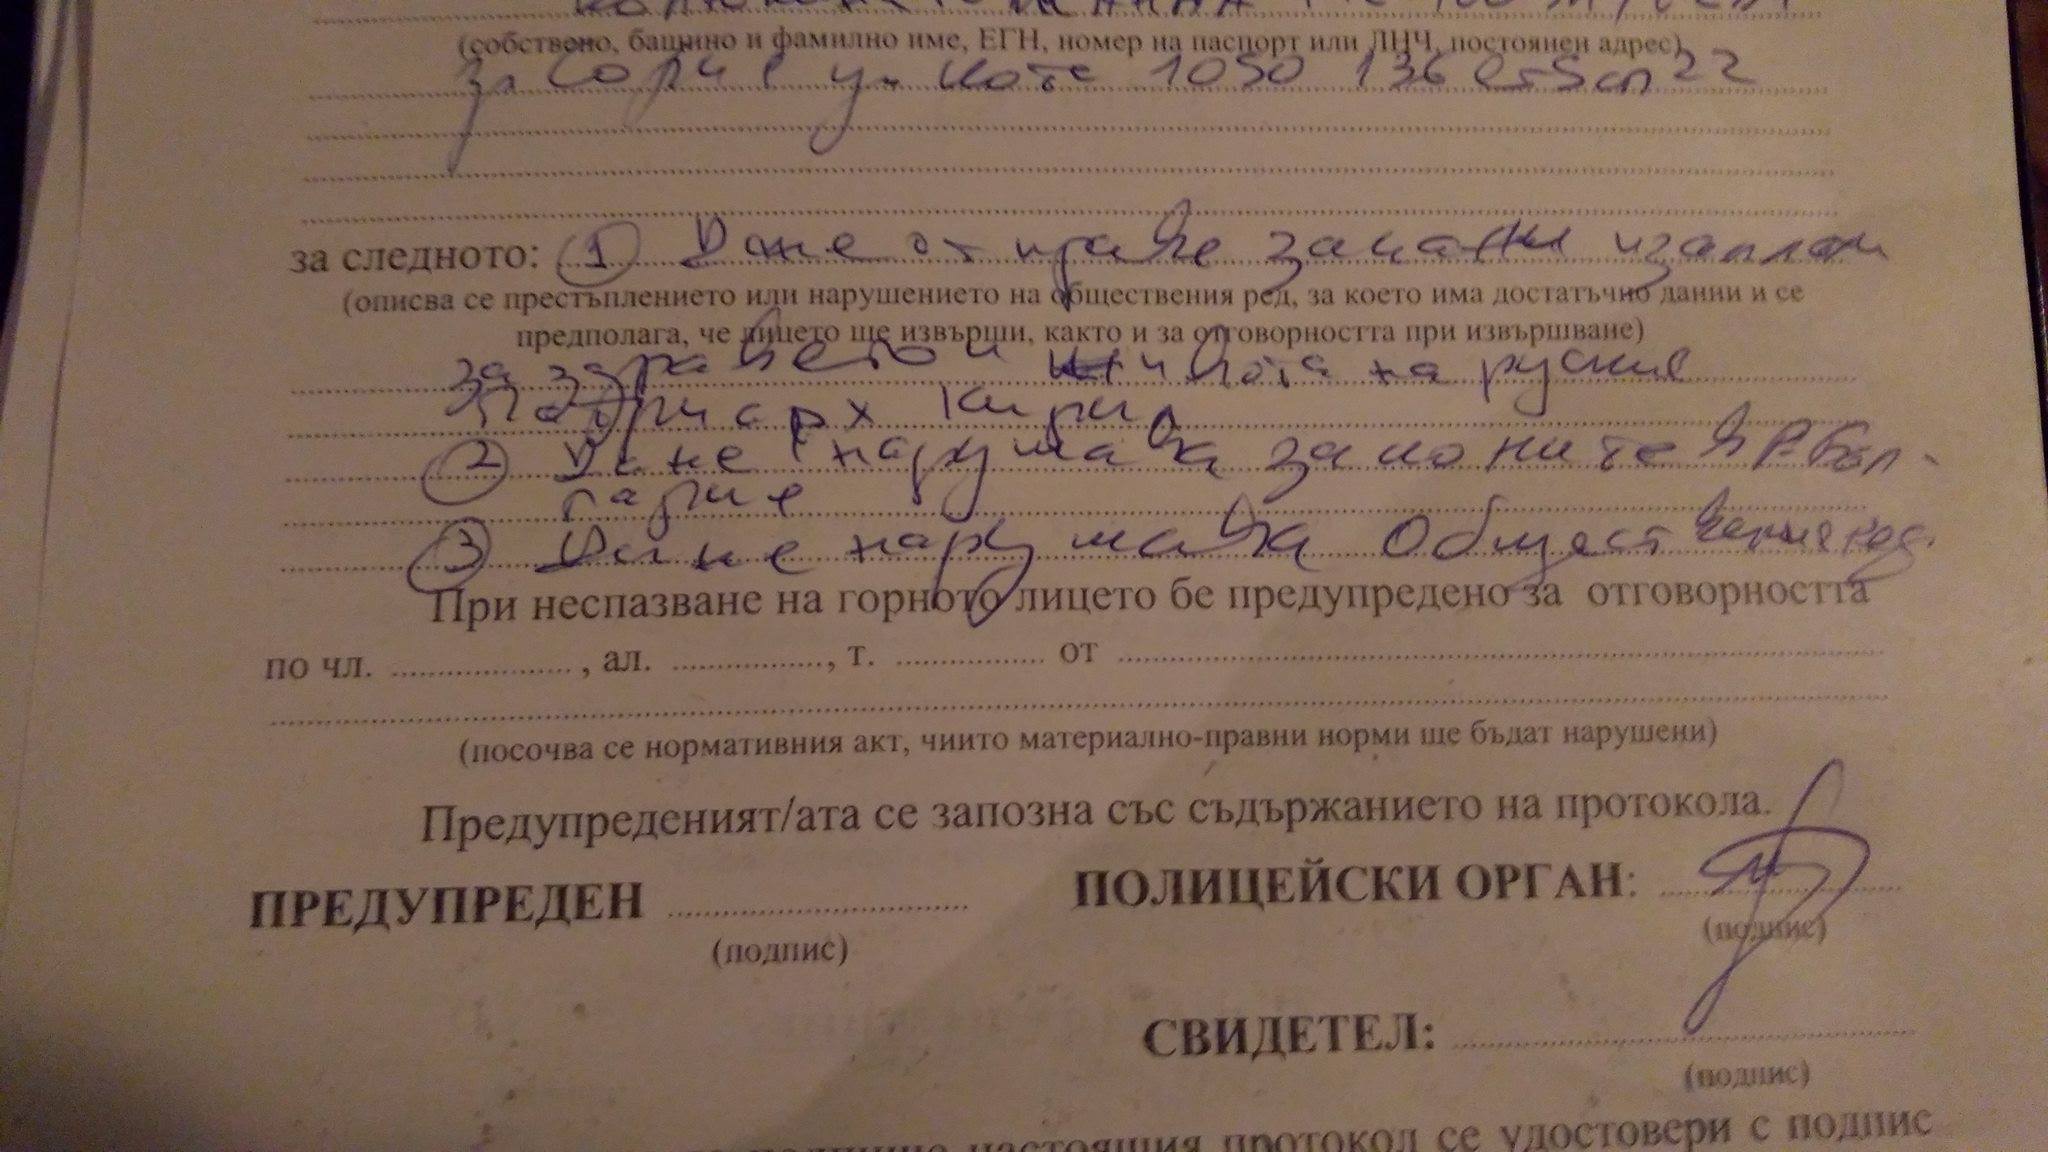 (собствено, бащино и фамилно име, ЕГН, номер на паспорт или ЛНЧ, постоянен адрес)
1050 136 22
за следното: 1 Да не отправя закани и заплахи
(описва се престъплението или нарушението на обществения ред, за което има достатъчно данни и се
предполага, че лицето ще извърши, както и за отговорността при извършване)
за здравето и живота на руския
Патриарх Кирил
2 Да не нарушава законите в Р. Бъл-
гария
3 Да не нарушава обществения ред.
При неспазване на горното лицето бе предупредено за отговорността
по чл. , ал. , т. от
(посочва се нормативния акт, чиито материално-правни норми ще бъдат нарушени)
Предупреденият/ата се запозна със съдържанието на протокола.
ПРЕДУПРЕДЕН ПОЛИЦЕЙСКИ ОРГАН:
(подпис) (подпис)
СВИДЕТЕЛ:
(подпис)
настоящия протокол се удостовери с подпис